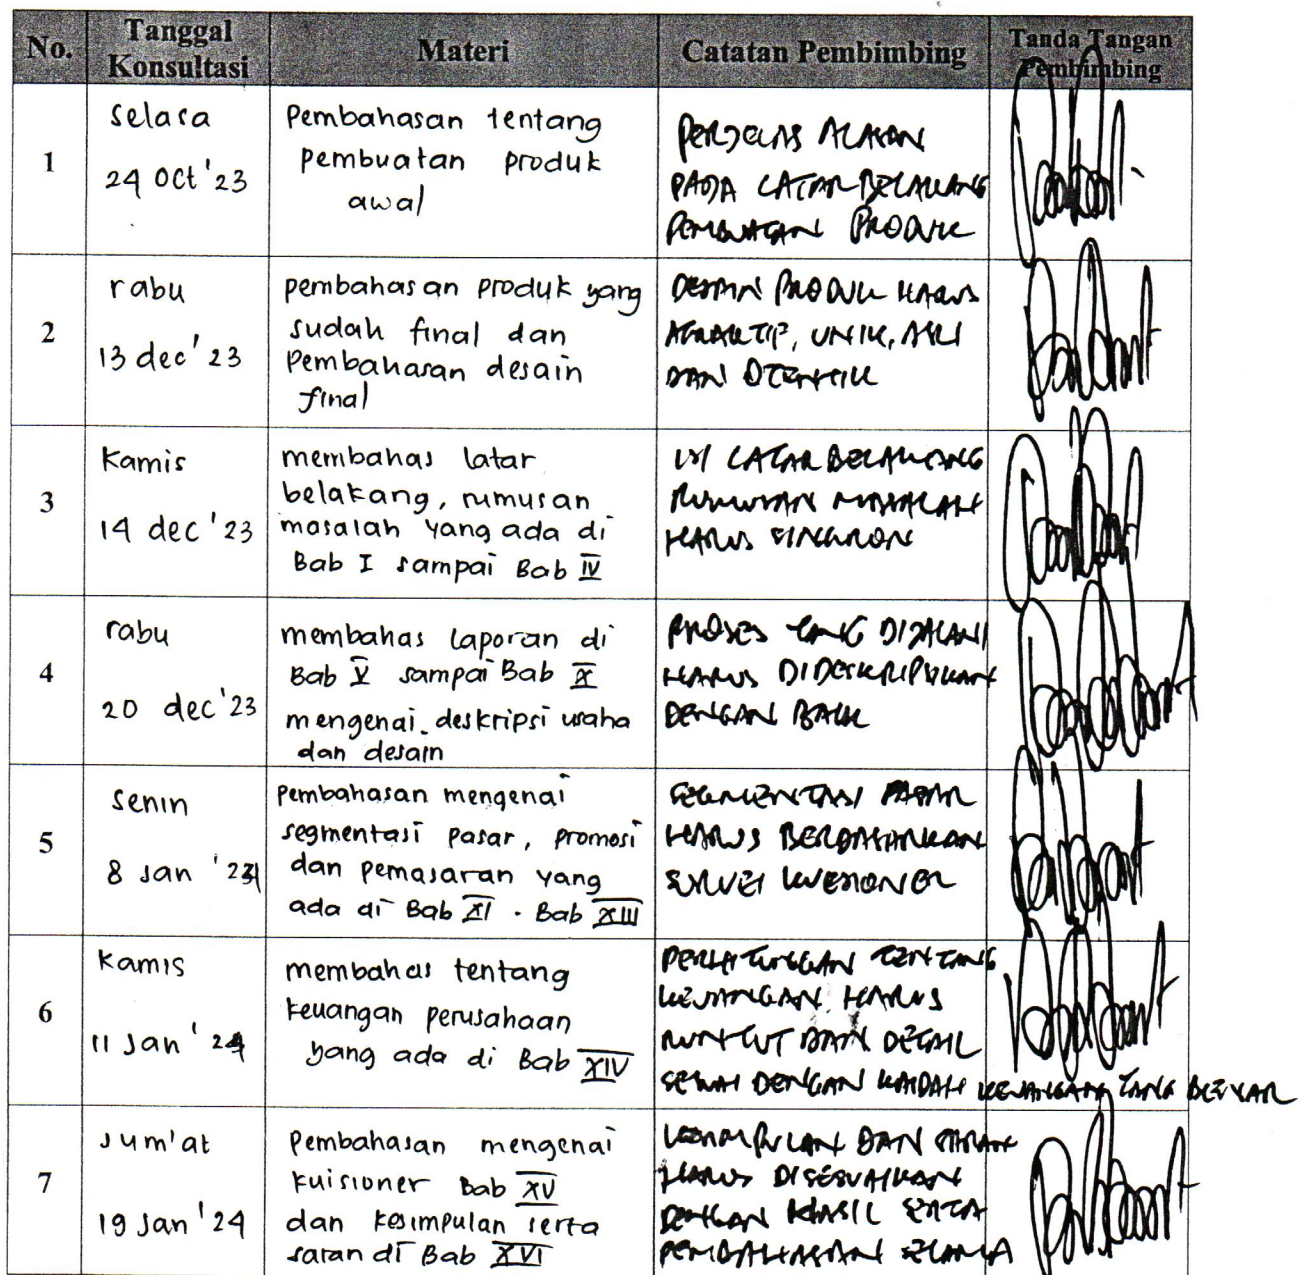 No.
Tanggal
Konsultasi
Materi
Catatan Pembimbing
Tanda Tangan
Pembimbing
1
selasa
24 Oct '23
Pembahasan tentang
pembuatan produk
awal
PERJELAS ALASAN
PADA LATAR BELAKANG
PEMBUATAN PRODUK
2
rabu
13 dec '23
pembahasan produk yang
sudah final dan
pembahasan desain
final
DESAIN PRODUK HARUS
ATRAKTIF, UNIK, ASLI
DAN OTENTIK
3
Kamis
14 dec '23
membahas latar
belakang, rumusan
masalah yang ada di
Bab I sampai Bab IV
ISI LATAR BELAKANG
RUMUSAN MASALAH
HARUS SINKRON
4
rabu
20 dec '23
membahas laporan di
Bab V sampai Bab X
mengenai deskripsi usaha
dan desain
PROSES YANG DIJALANI
HARUS DIDESKRIPSIKAN
DENGAN BAIK
5
senin
8 Jan '24
Pembahasan mengenai
segmentasi pasar, promosi
dan pemasaran yang
ada di Bab XI - Bab XIII
SEGMENTASI PASAR
HARUS BERDASARKAN
SURVEI KUESIONER
6
Kamis
11 Jan '24
membahas tentang
keuangan perusahaan
yang ada di Bab XIV
PERHITUNGGAN TENTANG
KEUANGAN HARUS
RUNTUT DAN DETAIL
SESUAI DENGAN KAIDAH KEUANGAN YANG BENAR
7
Jum'at
19 Jan '24
Pembahasan mengenai
kuisioner Bab XV
dan kesimpulan serta
saran di Bab XVI
KESIMPULAN DAN SARAN
HARUS DISESUAIKAN
DENGAN HASIL SERTA
PEMBAHASAN SELAMA